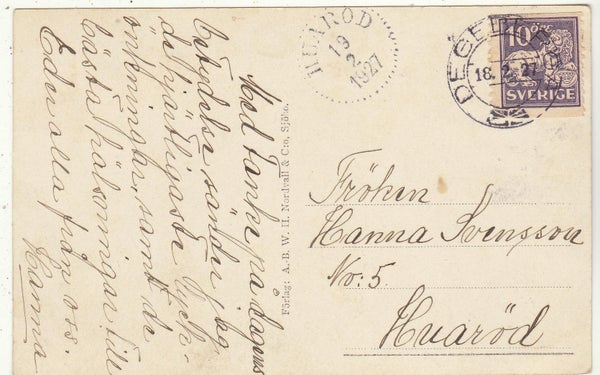 Med tanke på dagens
betydelse sänder jag
de hjärtligaste lyck-
önskningar, samt de
bästa hälsningar till
Eder alla från oss.
Hanna
Förlag: A.-B. W. H. Nordvall & C:o, Sjöbo.
HUARÖD
19
2
1927
DEGEBERGA
18.2.27
10 ÖRE
SVERIGE
Fröken
Hanna Svensson
No: 5.
Huaröd